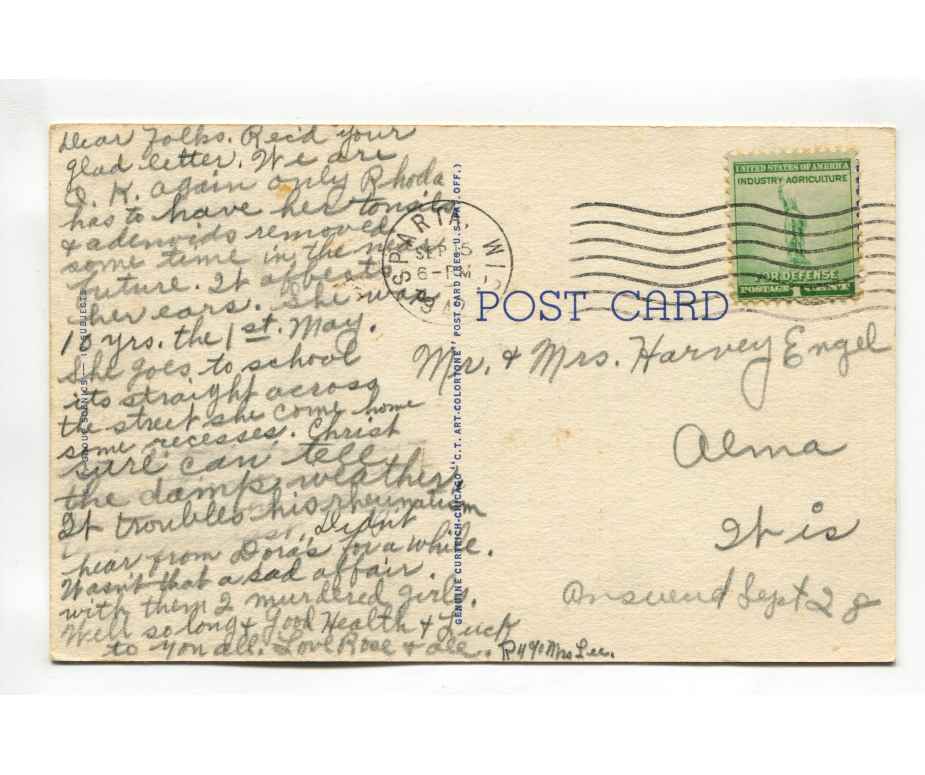 Dear Folks. Rec'd your
glad letter. We are
O. K. again only Rhoda
has to have her tonsils
& adenoids removed
some time in the near
future. It affects
her ears. She was
10 yrs. the 1st. May.
She goes to school
its straight across
the street she come home
some recesses. Christ
sure can tell
the damp weather
It troubles his rheumatism
Didnt
hear from Dora's for a while.
Wasn't that a sad affair
with them 2 murdered girls.
Well so long & Good Health & Luck
to you all. Love Rose & all.
GROUP SCENICS — SUBJECTS
GENUINE CURTEICH-CHICAGO "C.T. ART-COLORTONE" POST CARD (REG. U.S. PAT. OFF.)
SPARTA WIS.
SEP
6-PM
UNITED STATES OF AMERICA
INDUSTRY AGRICULTURE
FOR DEFENSE
POSTAGE 1 CENT
POST CARD
Mr. & Mrs. Harvey Engel
Alma
It is
Answerd Sept 28
Mrs Lee.